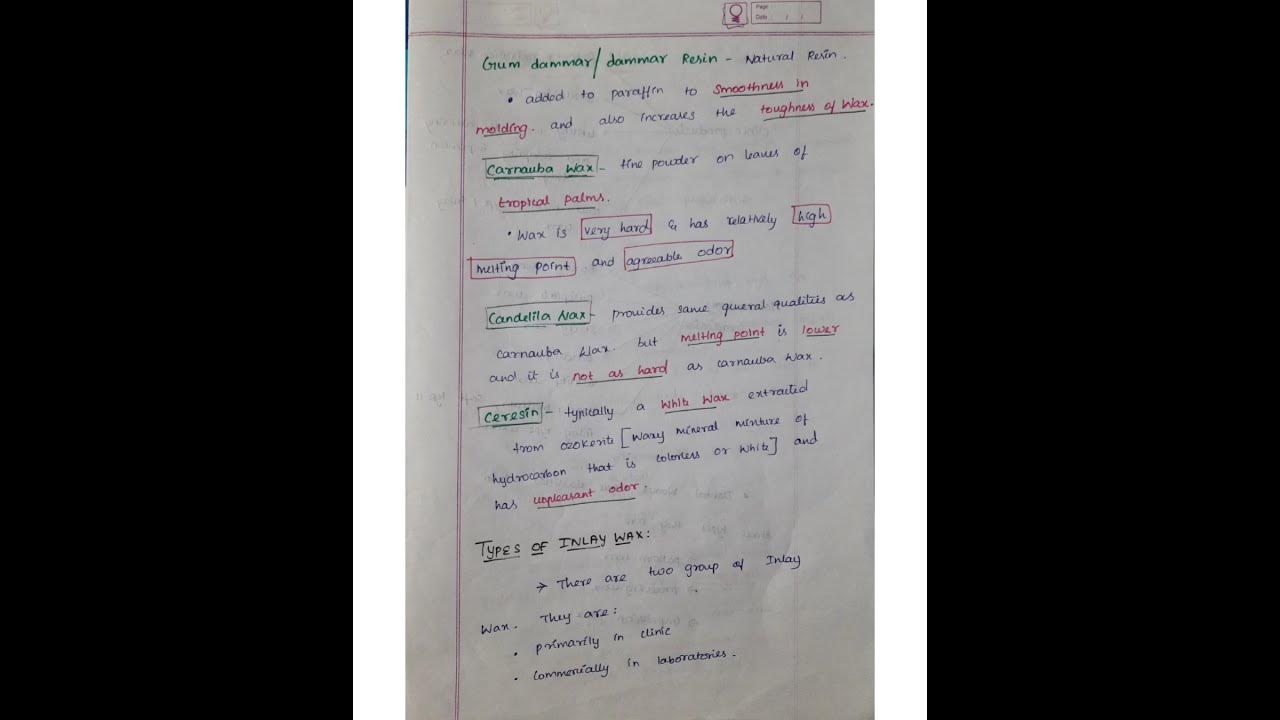 Page
Date : / /
Gum dammar/dammar Resin - Natural Resin.
• added to paraffin to smoothness in
molding. and also increases the toughness of wax.
Carnauba Wax - fine powder on leaves of
tropical palms.
• Wax is very hard & has relatively high
melting point and agreeable odor
Candelila Wax - provides same general qualities as
carnauba wax. but melting point is lower
and it is not as hard as carnauba wax.
Ceresin - typically a white wax extracted
from ozokerite [waxy mineral mixture of
hydrocarbon that is colorless or white] and
has unpleasant odor.
TYPES OF INLAY WAX:
→ There are two group of Inlay
Wax. They are:
• primarily in clinic
• commercially in laboratories.